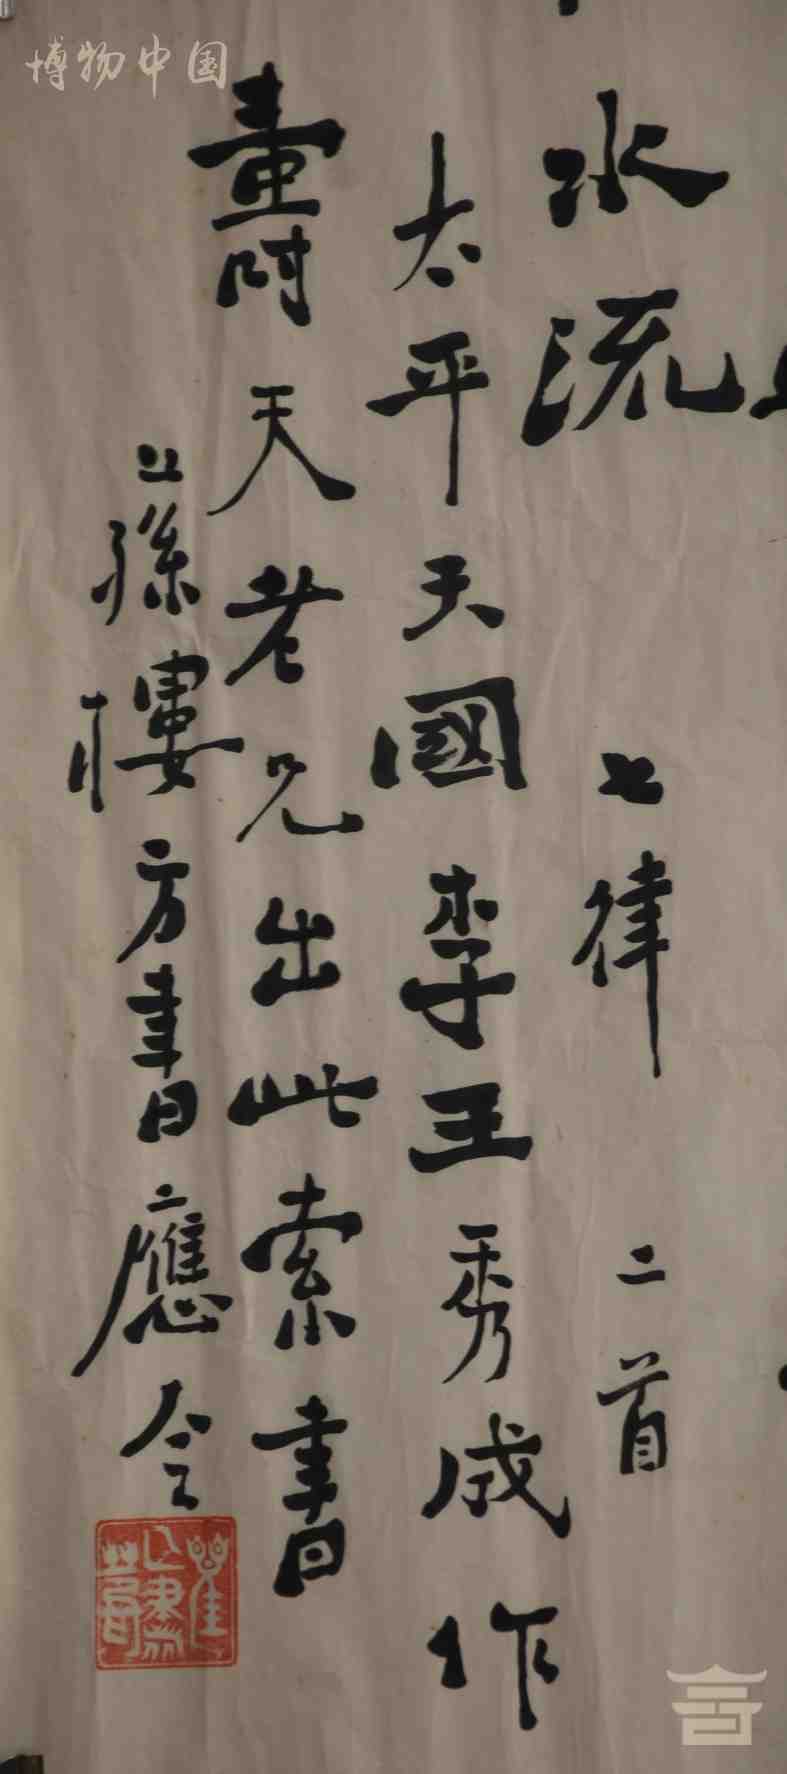 博物中国
水流
七律 二首
太平天國李王秀成作
壽天老兄出此索書
蓀樓方書應令